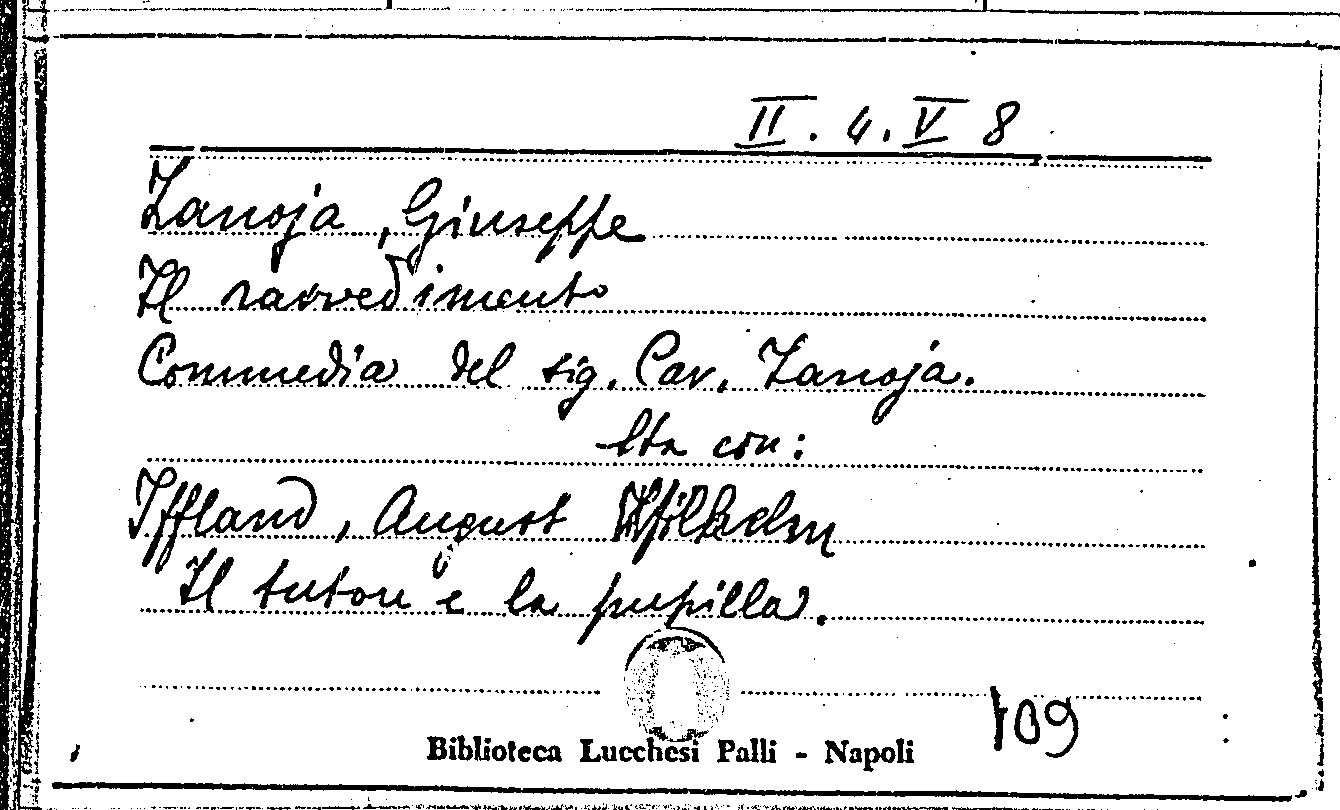 II. 4. V 8
Zanoja, Giuseppe
Il ravvedimento
Commedia del sig. Cav. Zanoja.
con:
Iffland, August Wilhelm
Il tutore e la pupilla.
109
Biblioteca Lucchesi Palli - Napoli